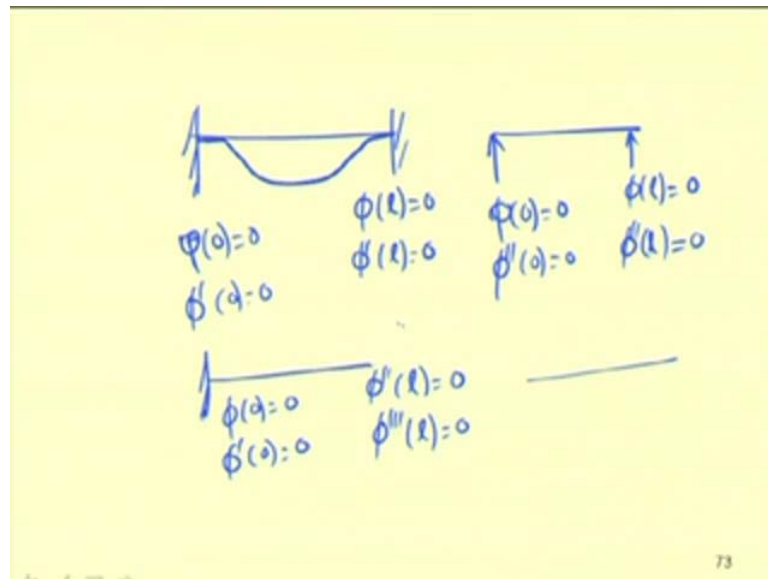 φ(0)=0
φ'(0)=0
φ(l)=0
φ'(l)=0
φ(0)=0
φ''(0)=0
φ(l)=0
φ''(l)=0
φ(0)=0
φ'(0)=0
φ''(l)=0
φ'''(l)=0
73